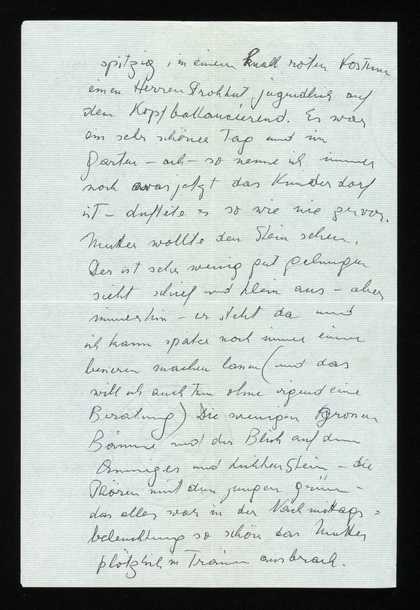 spitzig, in einem knall roten Kostüm
einen Herren Strohhut jugendlich auf
dem Kopf ballancierend. Es war
ein sehr schöner Tag und im
Garten – ach – so nenne ich immer
noch was jetzt das Kinderdorf
ist – duftete es so wie nie zuvor.
Mutter wollte den Stein sehen.
Der ist sehr wenig gut gelungen
sieht schief und klein aus – aber
immerhin – er steht da und
ich kann später noch immer einen
besseren machen lassen (und das
will ich auch tun ohne irgend eine
Beratung) Die wenigen grossen
Bäume und der Blick auf den
und – Die
mit dem jungen grün –
das alles war in der Nachmittags =
beleuchtung so schön das Mutter
plötzlich in Tränen ausbrach.